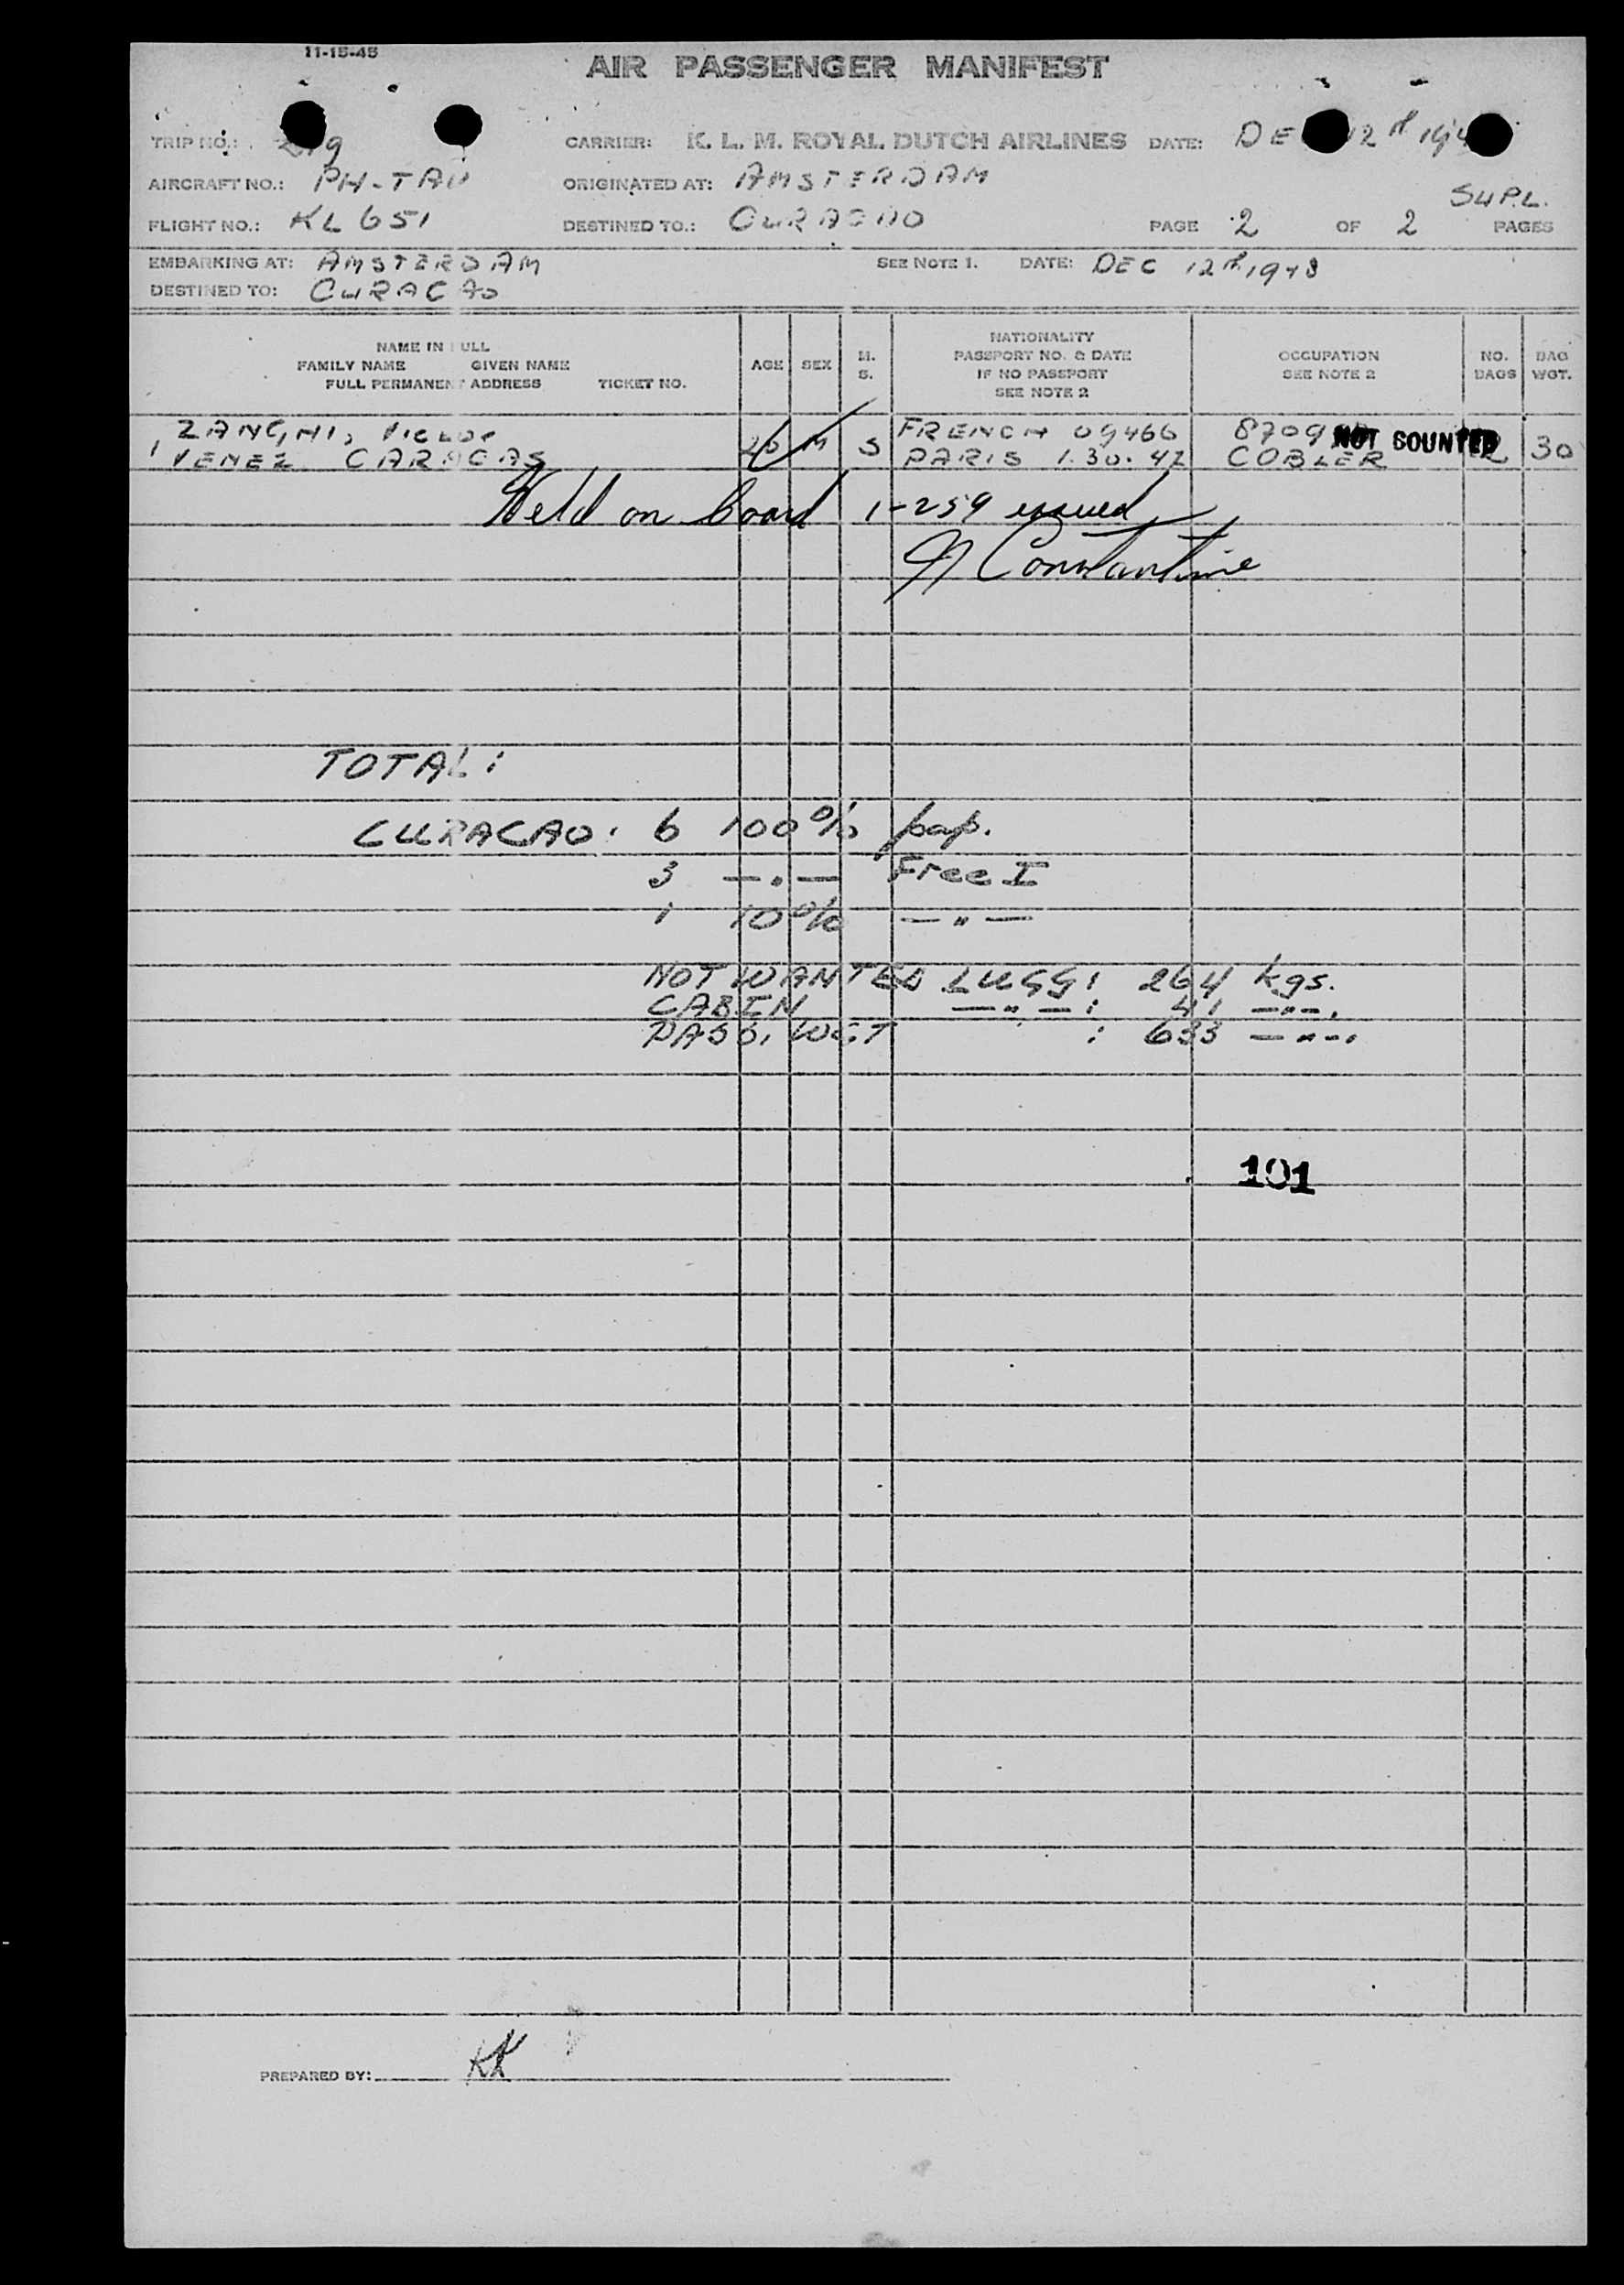 11-15-45
AIR PASSENGER MANIFEST
TRIP NO.: CARRIER: K. L. M. ROYAL DUTCH AIRLINES DATE: DE 12th 194
AIRCRAFT NO.: PH-TAU ORIGINATED AT: AMSTERDAM
SUPL.
FLIGHT NO.: KL 651 DESTINED TO.: CURACAO PAGE 2 OF 2 PAGES
EMBARKING AT: AMSTERDAM SEE NOTE 1. DATE: DEC 12th 1948
DESTINED TO: CURACAO
NAME IN FULL
FAMILY NAME GIVEN NAME
FULL PERMANENT ADDRESS TICKET NO.
AGE SEX
M.
S.
NATIONALITY
PASSPORT NO. & DATE
IF NO PASSPORT
SEE NOTE 2
OCCUPATION
SEE NOTE 2
NO.
BAGS
BAG
WGT.
1 ZANGHI, Victor M S FRENCH 09466 8709 NOT COUNTED 2 30
VENEZ. CARACAS PARIS 1.30.42 COBLER
Held on board 1-259 issued
Constantine
TOTAL:
CURACAO. 6 100% pap.
3 —.— Free I
1 10% —"—
NOT WANTED LUGG: 264 kgs.
CABIN —"—: 41 —"—.
PASS. WGT : 633 —"—.
101
PREPARED BY: KK